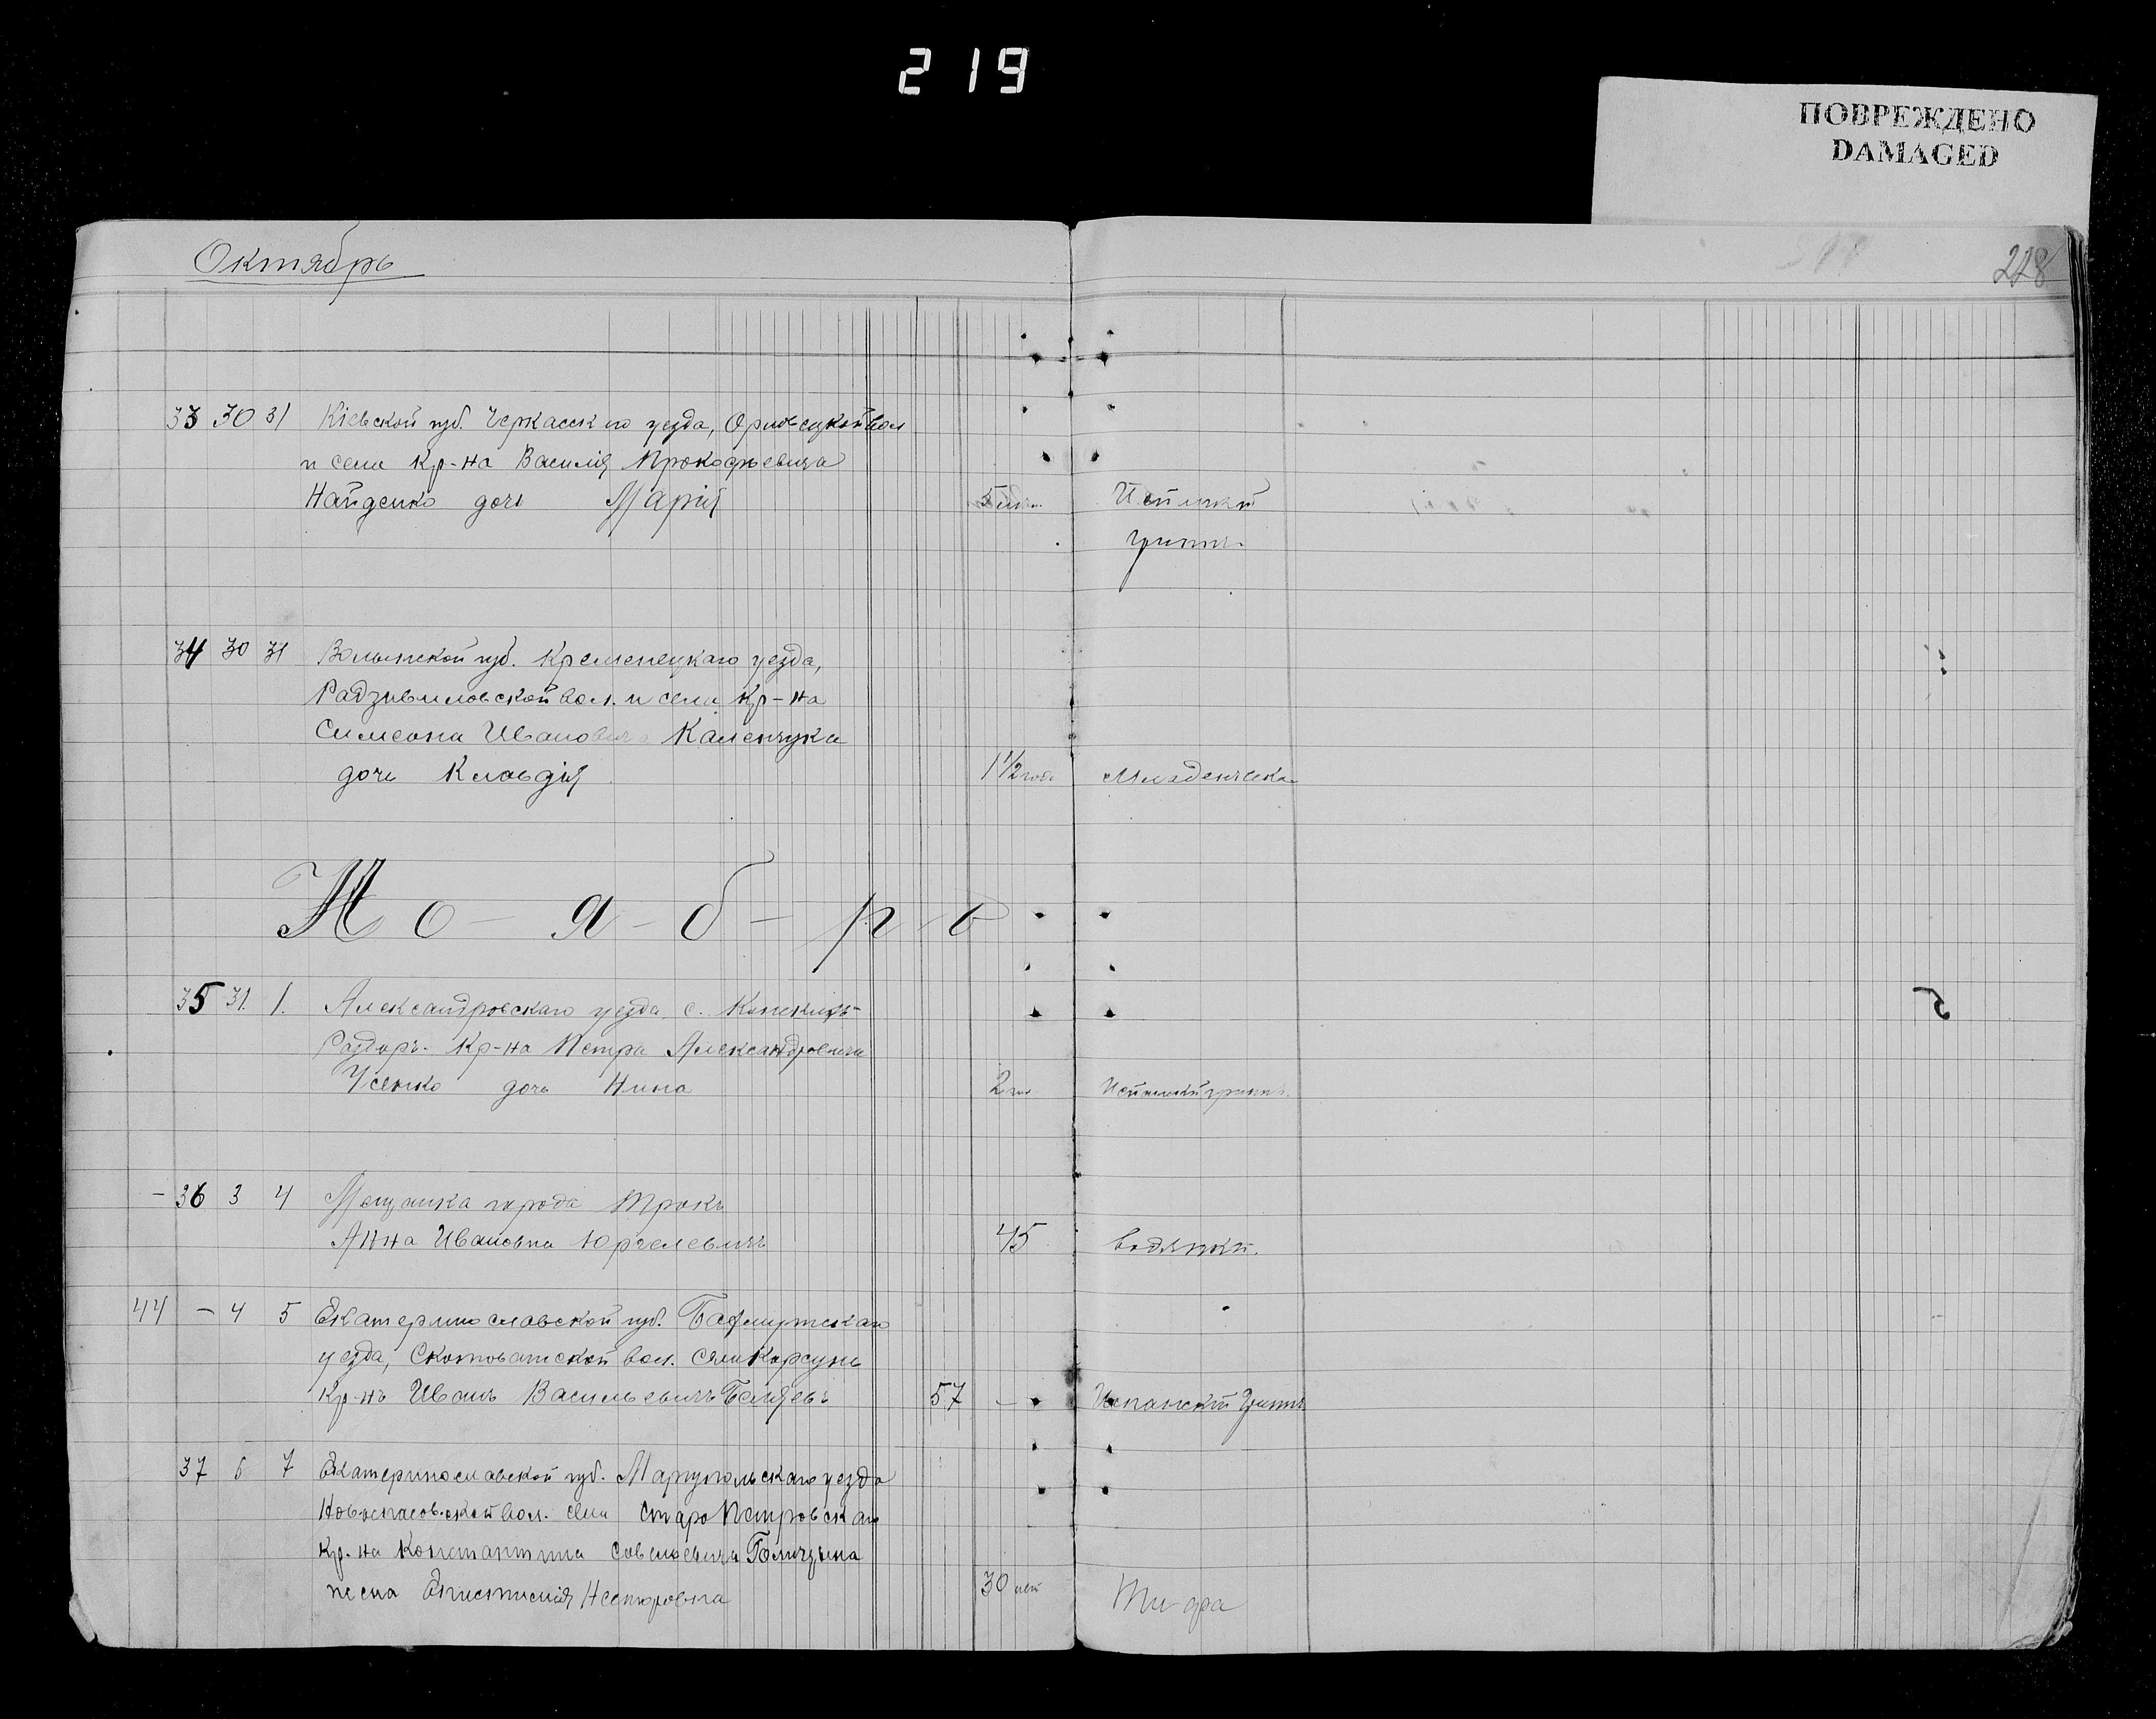 219
ПОВРЕЖДЕНО
DAMAGED
Октябрь
218
33 30 31 Кіевской губ. Черкасскаго уезда, Орловецкой вол
и села Кр-на Василія Прокофьевича
Найденко дочь Марія 5 Испанскій
гриппъ
34 30 31 Волынской губ. Кременецкаго уезда,
Радзивиловской вол. и села Кр-на
Симеона Ивановича Каленчука
дочь Клавдія 1 1/2 года Младенческа
Но-я-б-рь
35 31. 1. Александровскаго уезда с. Конскихъ-
Раздоръ. Кр-на Петра Александровича
Усенко дочь Нина 2 Испанскій гриппъ.
- 36 3 4 Мещанка города Трокъ
Анна Ивановна Юргелевичъ 45 водянки.
44 - 4 5 Екатеринославской губ. Бахмутскаго
уезда, Скотоватской вол. села Корсунь
Кр-нъ Иванъ Васильевичъ Беляевъ 57 - Испанскій Гриппъ
37 6 7 Екатеринославской губ. Маріупольскаго уезда
Новоспасовской вол. села Старо Петровскаго
Кр. на Константина Савельевича
жена Нестеровна 30 лет Тифа